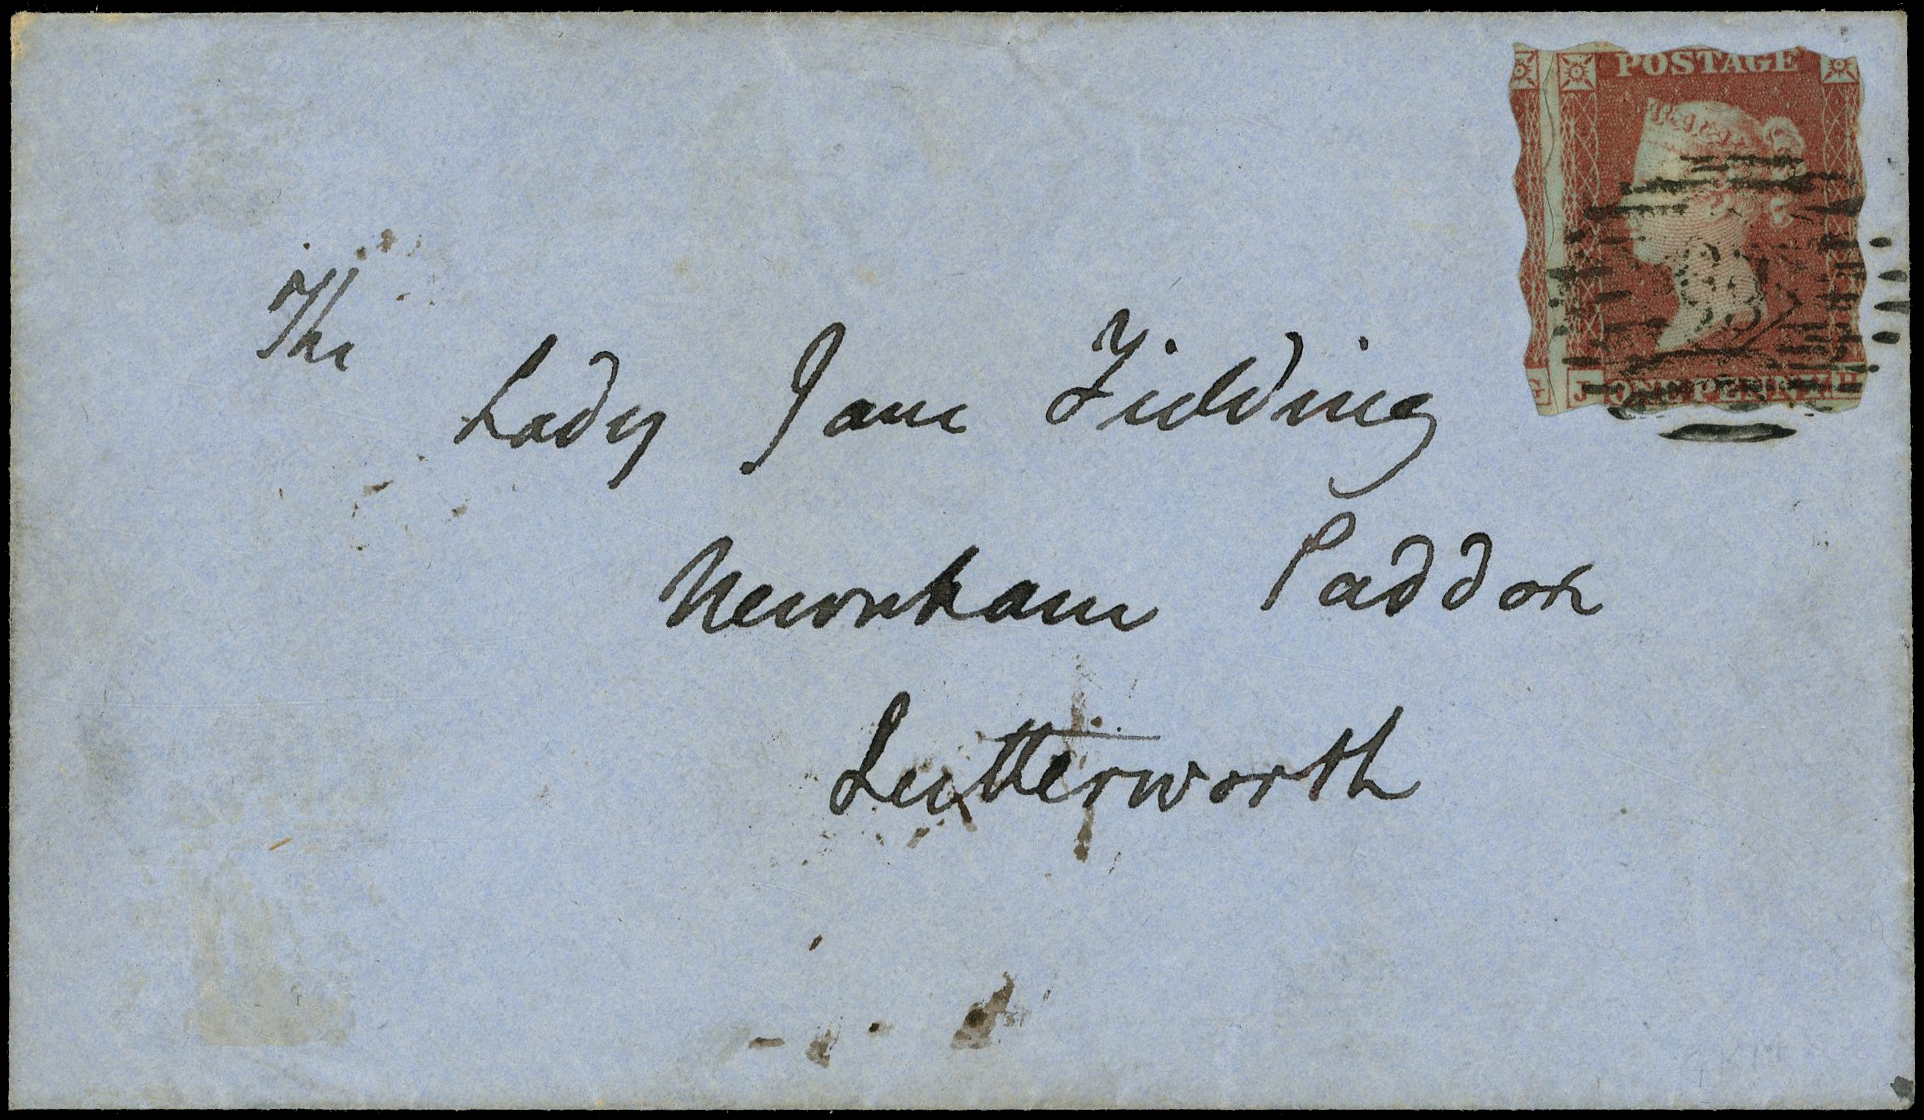 POSTAGE
G J ONE PENNY H
The
Lady Jane Fielding
Newnham Paddox
Lutterworth